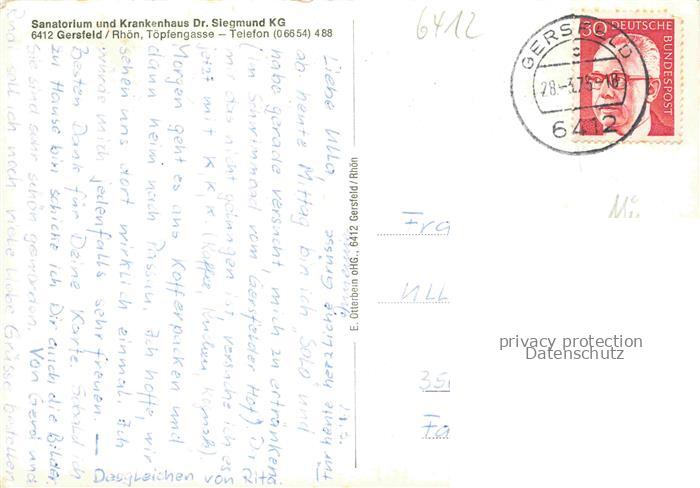 Sanatorium und Krankenhaus Dr. Siegmund KG
6412 Gersfeld / Rhön, Töpfengasse – Telefon (0 66 54) 4 88
6412
GERSFELD
28.-3.75-18
6412
30 DEUTSCHE
BUNDESPOST
Liebe Ulla,
ab heute Mittag bin ich "Solo" und
habe gerade versucht, mich zu ertränken
(im Schwimmbad vom Gersfelder Hof). Da
mir das nicht gelungen ist, versuche ich es
jetzt mit K, K, K (Kaffee, Kuchen, Kognak).
Morgen geht es ans Kofferpacken und
dann heim nach Passin. Ich hoffe, wir
sehen uns dort wirklich einmal. Ich
würde mich jedenfalls sehr freuen. —
Besten Dank für Deine Karte. Sobald ich
zu Hause bin schicke ich Dir auch die Bilder.
Sie sind sehr schön geworden. Von Gerd und
Rita soll ich noch viele liebe Grüsse bestellen
Desgleichen von Rita
Für heute herzliche Grüsse
E. Otterbein oHG., 6412 Gersfeld/Rhön
Mü
Fra
Ull
35
Fa
privacy protection
Datenschutz